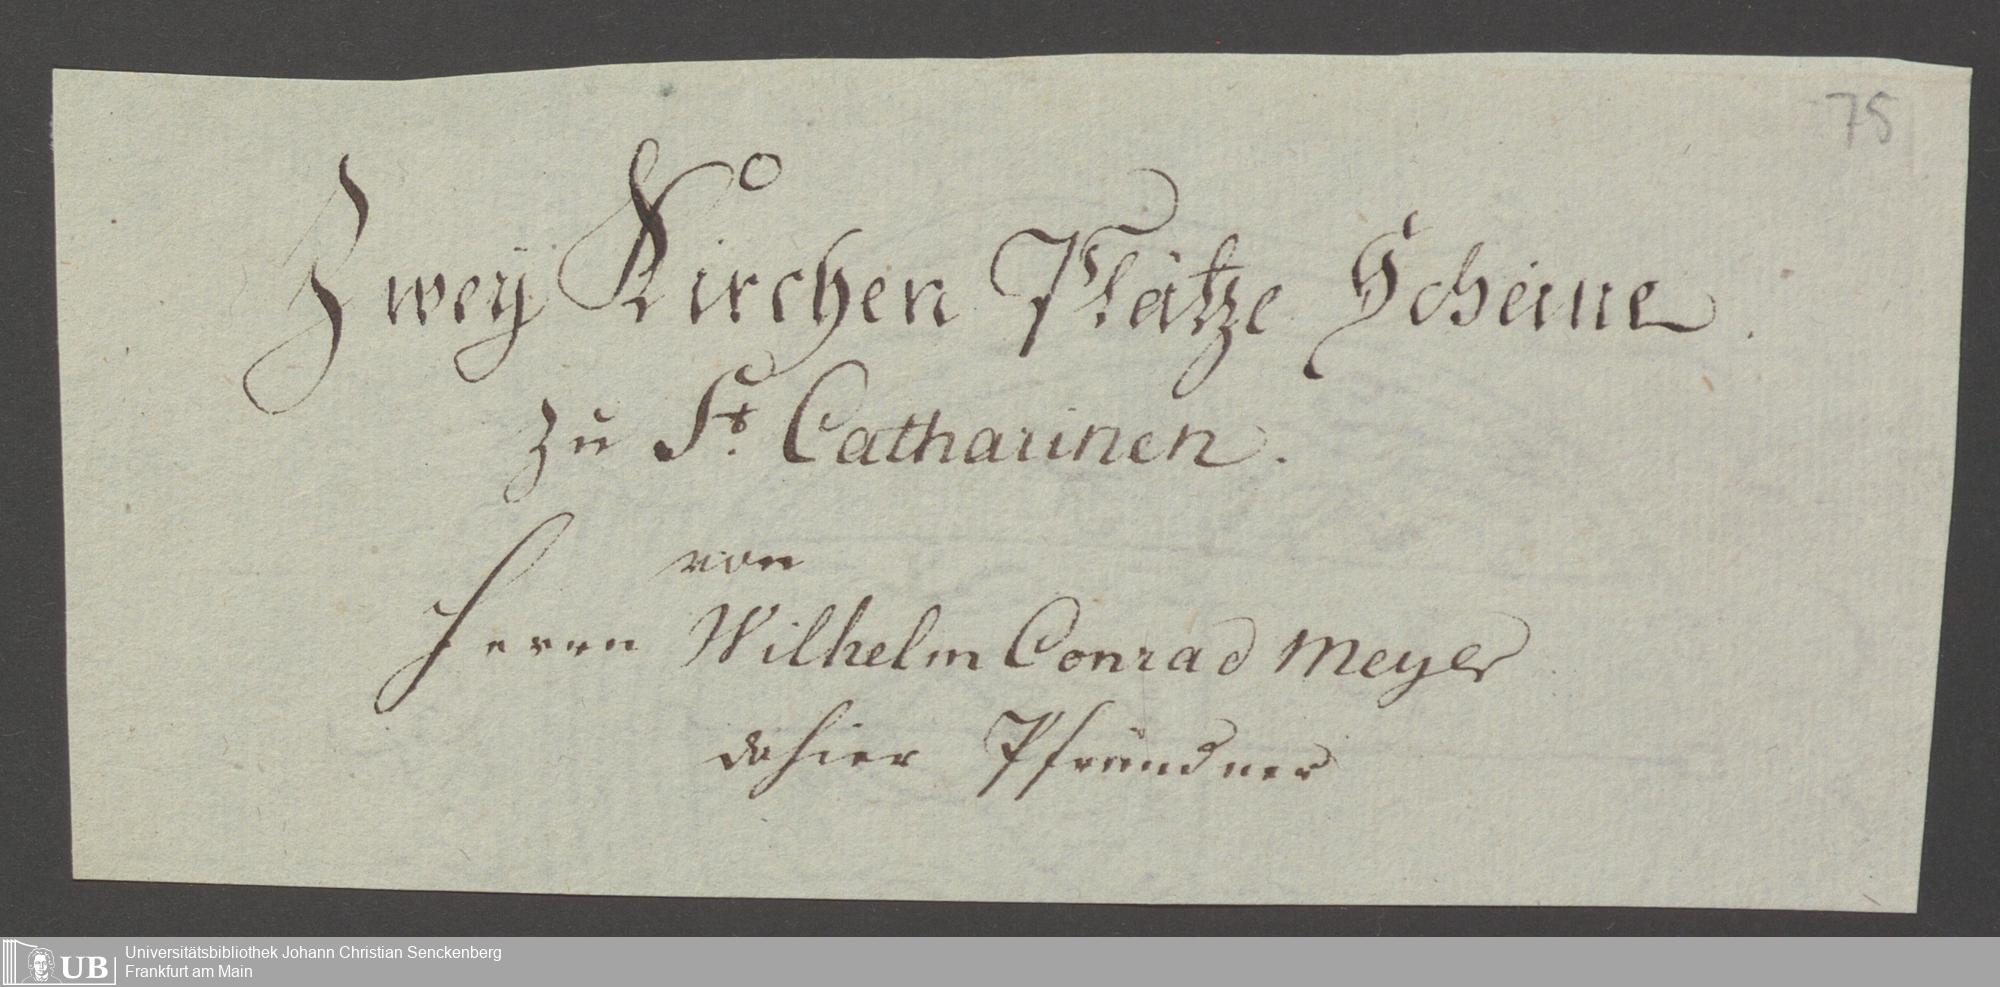 75
Zweÿ Kirchen Plätze Scheine.
zu St. Catharinen.
von
Herrn Wilhelm Conrad Meyer
dahier Pfründner
Universitätsbibliothek Johann Christian Senckenberg
Frankfurt am Main
UB